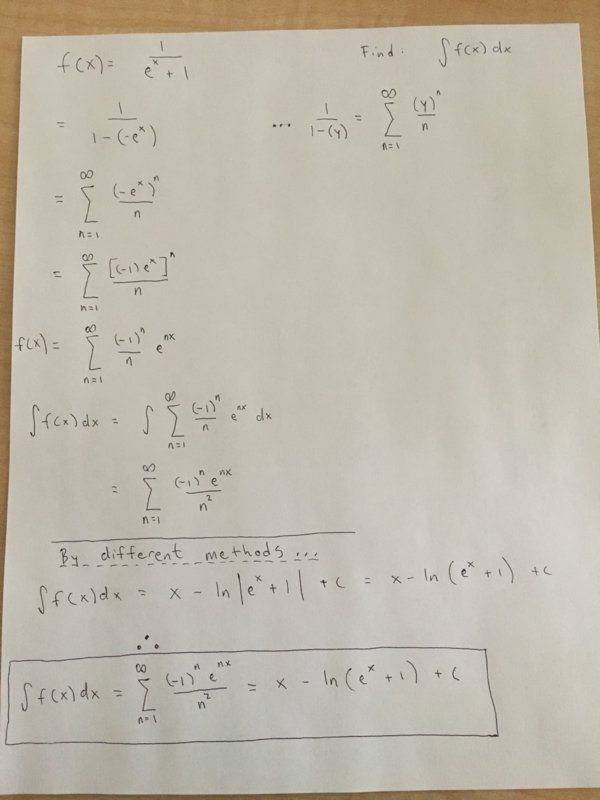 f(x) = 1/(e^x + 1) Find: ∫ f(x) dx
= 1/(1 - (-e^x)) ... 1/(1-(y)) = ∑_{n=1}^{∞} (y)^n/n
= ∑_{n=1}^{∞} (-e^x)^n/n
= ∑_{n=1}^{∞} [(-1) e^x]^n/n
f(x) = ∑_{n=1}^{∞} (-1)^n/n e^{nx}
∫ f(x) dx = ∫ ∑_{n=1}^{∞} (-1)^n/n e^{nx} dx
= ∑_{n=1}^{∞} (-1)^n e^{nx}/n^2
By different methods ...
∫ f(x) dx = x - ln|e^x + 1| + c = x - ln(e^x + 1) + c
∴
∫ f(x) dx = ∑_{n=1}^{∞} (-1)^n e^{nx}/n^2 = x - ln(e^x + 1) + c